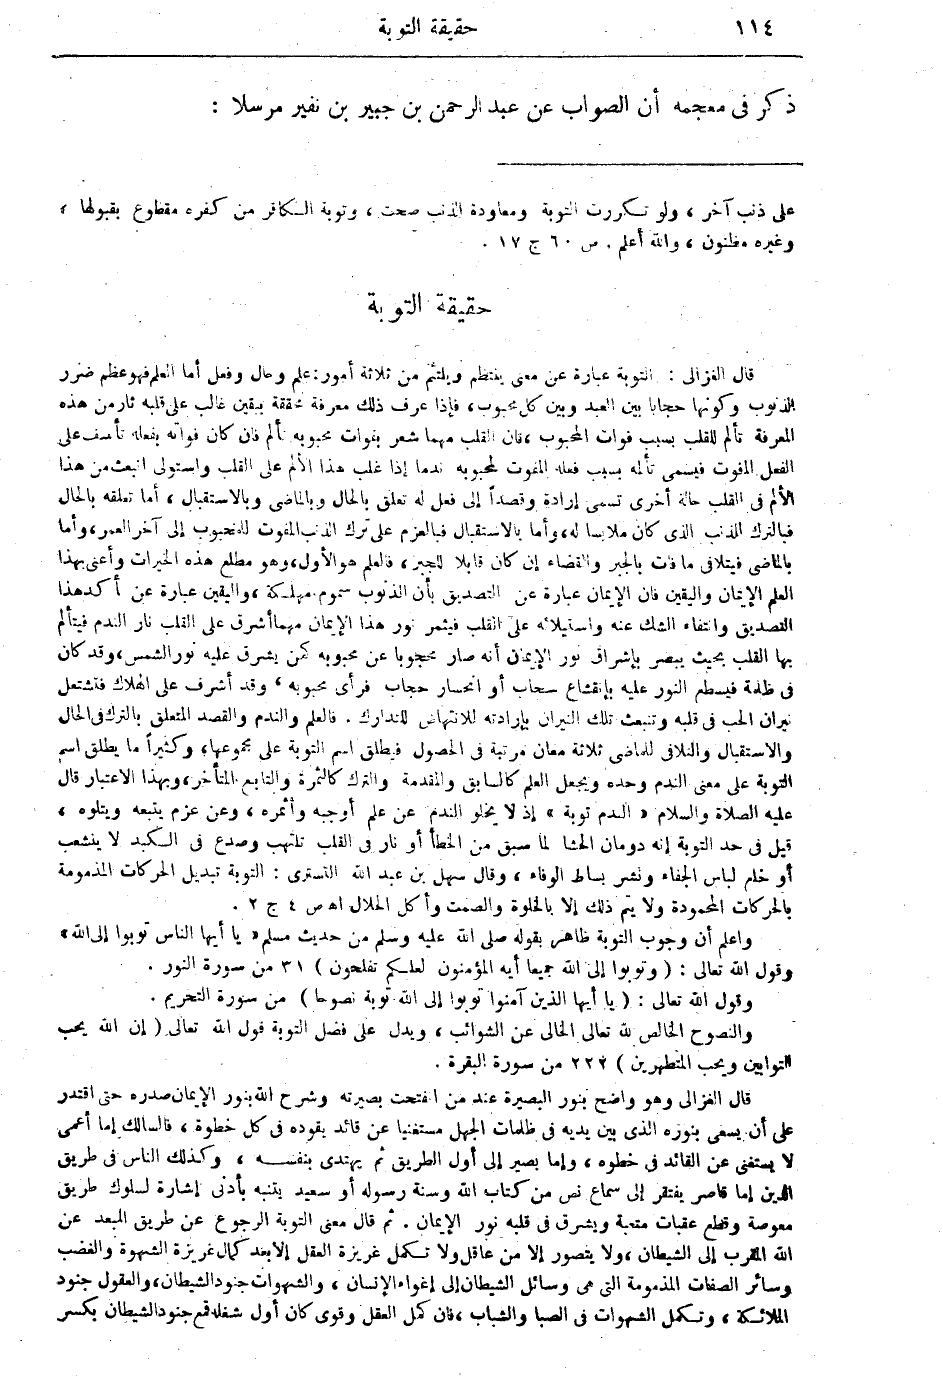 ١١٤
حقيقة التوبة
ذكر فى معجمه أن الصواب عن عبد الرحمن بن جبير بن نفير مرسلا :
على ذنب آخر ، ولو تكررت التوبة ومعاودة الذنب صحت ، وتوبة الكافر من كفره مقطوع بقبولها ،
وغيره مظنون ، والله أعلم . ص ٦٠ ج ١٧ .
حقيقة التوبة
قال الغزالى : التوبة عبارة عن معنى ينتظم ويلتئم من ثلاثة أمور : علم وحال وفعل أما العلم فهو عظم ضرر
الذنوب وكونها حجابا بين العبد وبين كل محبوب ، فإذا عرف ذلك معرفة محققة بيقين غالب على قلبه ثار من هذه
المعرفة تألم للقلب بسبب فوات المحبوب ، فان القلب مهما شعر بفوات محبوبه تألم فان كان فواته بفعله تأسف على
الفعل المفوت فيسمى تألمه بسبب فعله المفوت لمحبوبه ندما إذا غلب هذا الألم على القلب واستولى انبعث من هذا
الألم فى القلب حالة أخرى تسمى إرادة وقصداً إلى فعل له تعلق بالحال وبالماضى وبالاستقبال ، أما تعلقه بالحال
فبالترك للذنب الذى كان ملابسا له ، وأما بالاستقبال فبالعزم على ترك الذنب المفوت للمحبوب إلى آخر العمر ، وأما
بالماضى فيتلافى ما فات بالجبر والقضاء إن كان قابلا للجبر ، فالعلم هو الأول ، وهو مطلع هذه الخيرات وأعنى بهذا
العلم الإيمان واليقين فان الإيمان عبارة عن التصديق بأن الذنوب سموم مهلكة ، واليقين عبارة عن أكد هذا
التصديق وانتفاء الشك عنه واستيلائه على القلب فيثمر نور هذا الإيمان مهما أشرق على القلب نار الندم فيتألم
بها القلب بحيث يبصر بإشراق نور الإيمان أنه صار محجوبا عن محبوبه كمن يشرق عليه نور الشمس ، وقد كان
فى ظلمة فيسطع النور عليه بإنقشاع سحاب أو انحسار حجاب فرأى محبوبه ، وقد أشرف على الهلاك فتشتعل
نيران الحب فى قلبه وتنبعث تلك النيران بإرادته للانتهاض للتدارك . فالعلم والندم والقصد المتعلق بالترك فى الحال
والاستقبال والتلافى للماضى ثلاثة معان مرتبة فى الحصول فيطلق اسم التوبة على مجموعها ، وكثيراً ما يطلق اسم
التوبة على معنى الندم وحده ويجعل العلم كالسابق والمقدمة والترك كالثمرة والتابع المتأخر ، وبهذا الاعتبار قال
عليه الصلاة والسلام « الندم توبة » إذ لا يخلو الندم عن علم أوجبه وأثمره ، وعن عزم يتبعه ويتلوه ،
قيل فى حد التوبة إنه دومان الحشا لما سبق من الخطأ أو نار فى القلب تلتهب وصدع فى الكبد لا ينشعب
أو خلع لباس الجفاء ونشر بساط الوفاء ، وقال سهل بن عبد الله التسترى : التوبة تبديل الحركات المذمومة
بالحركات المحمودة ولا يتم ذلك إلا بالخلوة والصمت وأكل الحلال اهـ ص ٤ ج ٢ .
واعلم أن وجوب التوبة ظاهر بقوله صلى الله عليه وسلم من حديث مسلم « يا أيها الناس توبوا إلى الله »
وقول الله تعالى : ( وتوبوا إلى الله جميعا أيه المؤمنون لعلكم تفلحون ) ٣١ من سورة النور .
وقول الله تعالى : ( يا أيها الذين آمنوا توبوا إلى الله توبة نصوحا ) من سورة التحريم .
والنصوح الخالص لله تعالى الخالى عن الشوائب ، ويدل على فضل التوبة قول الله تعالى ( إن الله يحب
التوابين ويحب المتطهرين ) ٢٢٢ من سورة البقرة .
قال الغزالى وهو واضح بنور البصيرة عند من انفتحت بصيرته وشرح الله بنور الإيمان صدره حتى اقتدر
على أن يسعى بنوره الذى بين يديه فى ظلمات الجهل مستغنيا عن قائد يقوده فى كل خطوة ، فالسالك إما أعمى
لا يستغنى عن القائد فى خطوه ، وإما بصير إلى أول الطريق ثم يهتدى بنفسه ، وكذلك الناس فى طريق
الدين إما قاصر يفتقر إلى سماع نص من كتاب الله وسنة رسوله أو سعيد يتنبه بأدنى إشارة لسلوك طريق
معوصة وقطع عقبات متعبة ويشرق فى قلبه نور الإيمان . ثم قال معنى التوبة الرجوع عن طريق المبعد عن
الله المقرب إلى الشيطان ، ولا يتصور إلا من عاقل ولا تكمل غريزة العقل إلا بعد كمال غريزة الشهوة والغضب
وسائر الصفات المذمومة التى هى وسائل الشيطان إلى إغواء الإنسان ، والشهوات جنود الشيطان ، والعقول جنود
الملائكة ، وتكمل الشهوات فى الصبا والشباب ، فان كمل العقل وقوى كان أول شغله قمع جنود الشيطان بكسر